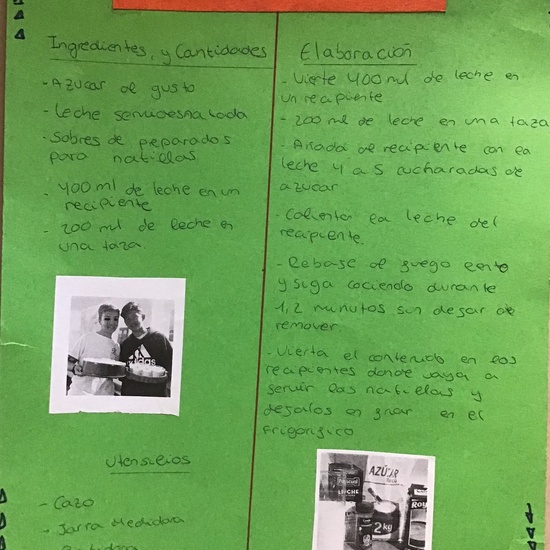 Ingredientes, y Cantidades
- Azucar al gusto
- Leche semidesnatada
- Sobres de peparados
para natillas
- 400 ml de leche en un
recipiente
- 200 ml de leche en
una taza
Utensilios
- Cazo
- Jarra Medidora
Elaboración
- Vierte 400 ml de leche en
un recipiente
- 200 ml de leche en una taza
- Añada al recipiente con la
leche 4 a 5 cucharadas de
azucar
- Calienta la leche del
recipiente.
- Rebase al fuego lento
y siga cociendo durante
1,2 minutos sin dejar de
remover.
- Vierta el contenido en los
recipientes donde vaya a
servir las natillas y
dejalos enfriar en el
frigorifico
adidas
AZÚCAR
Pascual
LECHE
2 kg
Royal